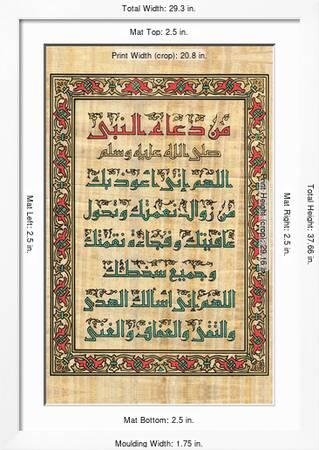 Total Width: 29.3 in.
Mat Top: 2.5 in.
Print Width (crop): 20.8 in.
من دعاء النبي
صلى الله عليه وسلم
اللهم إني أعوذ بك
من زوال نعمتك وتحول
عافيتك وفجاءة نقمتك
وجميع سخطك
اللهم إني أسألك الهدى
والتقى والعفاف والغنى
Mat Left: 2.5 in.
Print Height (crop): 29.16 in.
Mat Right: 2.5 in.
Total Height: 37.66 in.
Mat Bottom: 2.5 in.
Moulding Width: 1.75 in.